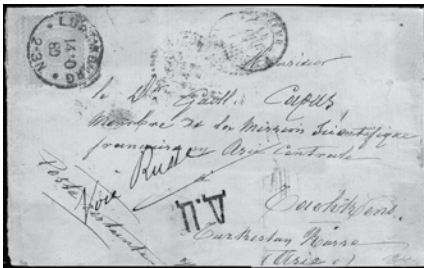 LUXEMBOURG
2-3 N
Monsieur
le Dr. Guill. Capus
Membre de la Mission Scientifique
française en Asie Centrale
Poste restante
Voie Russe
Tachkent
Turkestan Russe
(Asie c.)